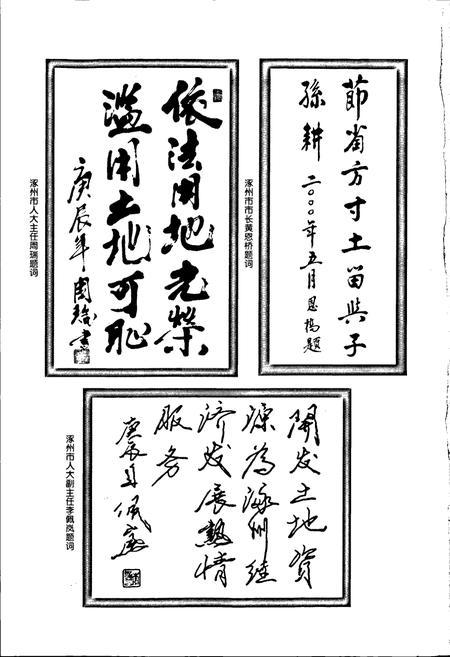 節省方寸土留與子
孫耕 二〇〇〇年五月恩橋题
涿州市市长黄恩桥题词
依法用地光榮
滥用土地可耻
庚辰年周瑞書
涿州市人大主任周瑞题词
開发土地資
源為涿州经
济发展熱情
服务
庚辰年佩嵐
涿州市人大副主任李佩岚题词